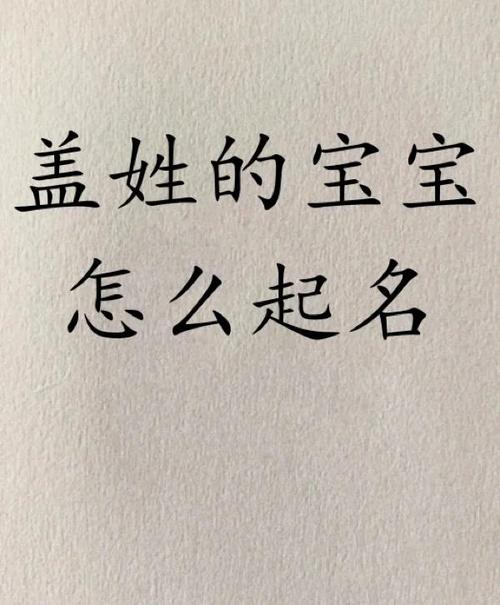 盖姓的宝宝
怎么起名